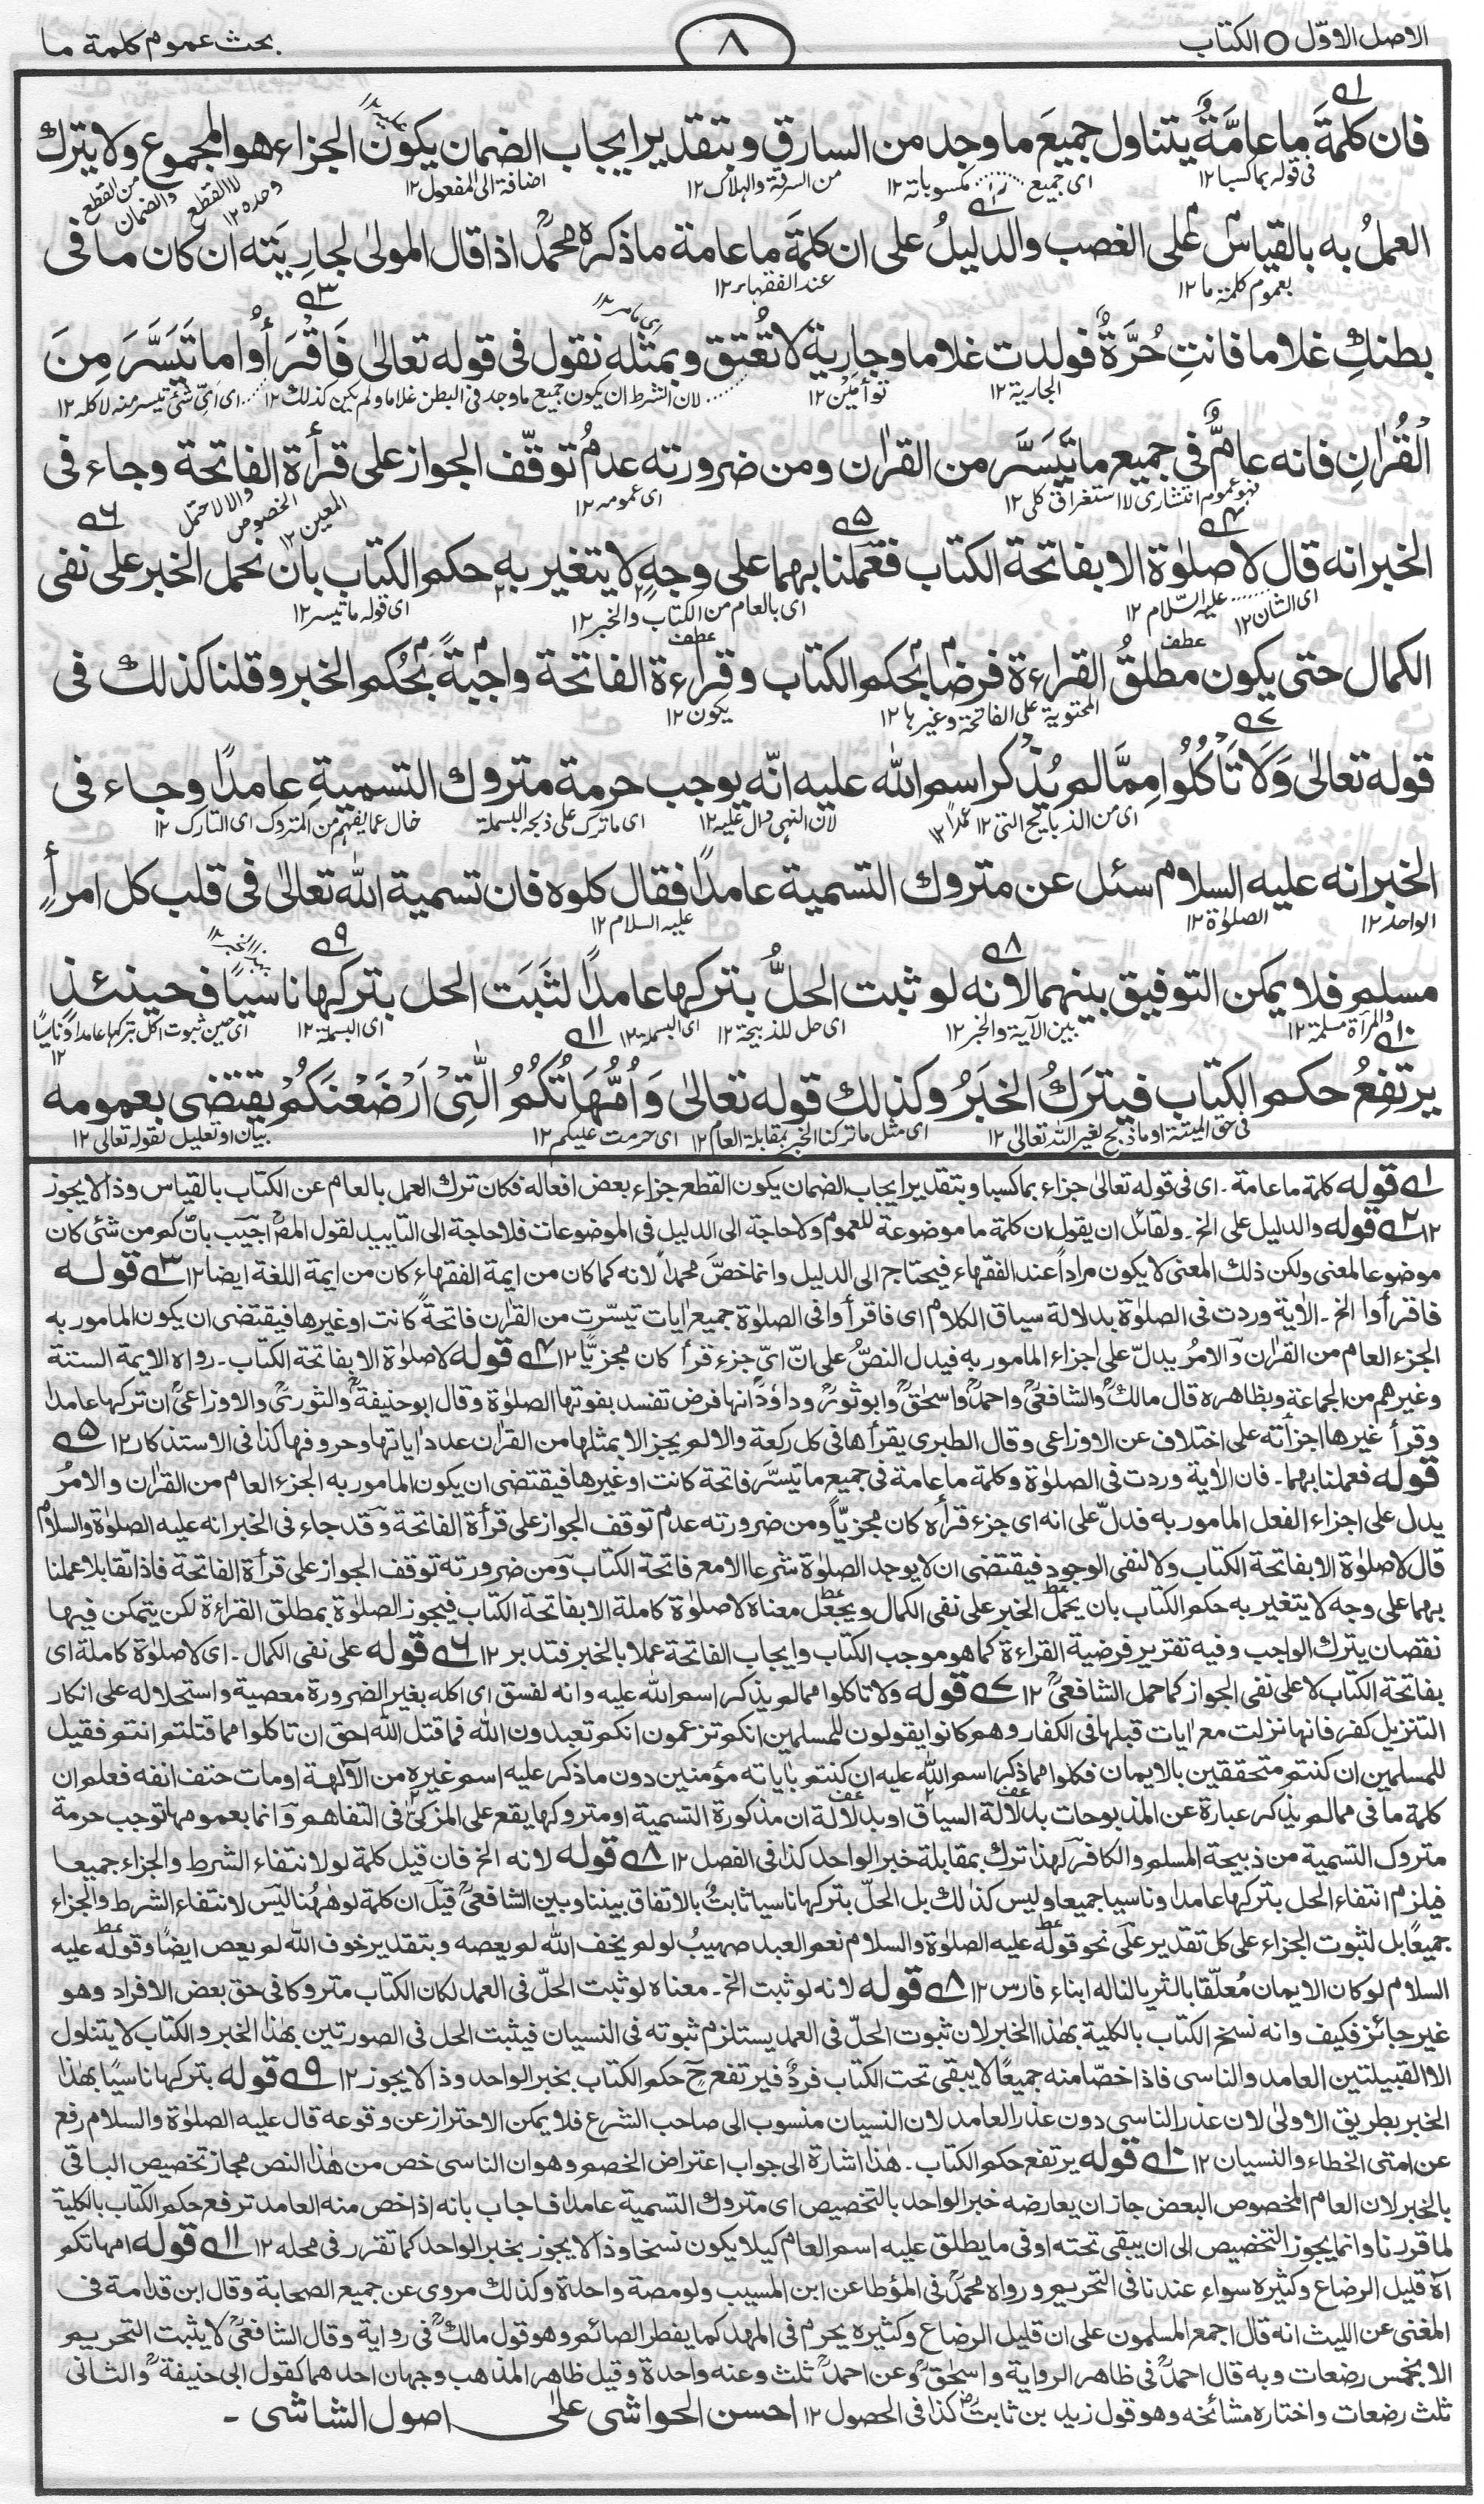 الاصل الاوّل ○ الكتاب
٨
بحث عموم كلمة ما
فان كلمةَ ما عامَّةٌ يتناول جميعَ ما وجد من السارق وبتقدير ايجاب الضمان يكون الجزاء هو المجموع ولا يترك
فى قوله بما كسبا ١٢ اى جميع مكسوباته ١٢ من السرقة والهلاك ١٢ اضافة الى المفعول ١٢ وحده ١٢ لا القطع من القطع والضمان
العملُ به بالقياس على الغصب والدليلُ على ان كلمةَ ما عامة ما ذكره محمدؒ اذا قال المولىٰ لجارِيَته ان كان ما فى
بعموم كلمة ما ١٢ عند الفقهاء ١٢
بطنكِ غلاما فانتِ حُرَّةٌ فولدت غلاما وجارية لا تُعتق وبمثله نقول فى قوله تعالىٰ فَاقْرَأُوا ما تَيَسَّرَ مِنَ
الجارية ١٢ توأمَيْن ١٢ لان الشرط ان يكون جميع ما وجد فى البطن غلاما ولم يكن كذلك ١٢ اى اىّ شئ تيسر منه لا كله ١٢
الْقُرْاٰنِ فانه عامٌّ فى جميع ما تَيَسَّرَ من القراٰن ومن ضرورته عدمُ توقّف الجواز على قرأة الفاتحة وجاء فى
فهو عموم انتشارى لا استغراقى كلى ١٢ اى عمومه ١٢ المعين ١٢ الخصوص والا لاحتمل
الخبر انه قال لا صلوٰة الا بفاتحة الكتاب فعَملنا بهما على وجهٍ لا يتغير به حكم الكتاب بان نحمل الخبر على نفى
اى الشان ١٢ عليه السّلام ١٢ اى بالعام من الكتاب والخبر ١٢ اى قوله ما تيسر ١٢
الكمال حتى يكون مطلقُ القراءة فرضًا بحكم الكتاب وقراءة الفاتحة واجبةً بحُكم الخبر وقلنا كذلك فى
عطف المحتوية على الفاتحة وغيرها ١٢ عطف يكون ١٢
قوله تعالىٰ وَلَا تَأْكُلُوا مِمَّا لم يُذْكر اسم الله عليه انّه يوجب حرمة متروك التسميةِ عامدًا وجاء فى
اى من الذبايح التى ١٢ عمدًا ١٢ لان النهى دال عليه ١٢ اى ما ترك على ذبحه البسملة حال عما يفهم من المتروك اى التارك ١٢
الخبر انه عليه السلام سئل عن متروك التسمية عامدًا فقال كلوه فان تسمية اللّٰه تعالىٰ فى قلب كل امرأٍ
الواحد ١٢ الصلوٰة ١٢ عليه السلام ١٢
مسلم فلا يمكن التوفيق بينهما لانه لو ثبت الحلُّ بتركها عامدًا لثَبَتَ الحل بتركها ناسيًا فحينئذٍ
والمرأة مسلمة ١٢ بين الآية والخبر ١٢ اى حل للذبيحة ١٢ اى البسملة ١٢ اى البسملة ١٢ اى حين ثبوت الحل بتركها عامدا وناسيًا ١٢
يرتفِعُ حكم الكتاب فيترَكُ الخبَرُ وكذلك قوله تعالىٰ وَاُمَّهَاتُكُمُ الّٰتِىْ اَرْضَعْنَكُمْ يقتضى بعمومه
فى حق الميتة او ما ذبح لغير الله تعالىٰ ١٢ اى مثل ما تركنا الخبر بمقابلة العام ١٢ اى حرمت عليكم ١٢ بيان او تعليل لقوله تعالى ١٢
١ قوله كلمة ما عامة۔ اى فى قوله تعالىٰ جزاء بما كسبا وبتقدير ايجاب الضمان يكون القطع جزاء بعض افعاله فكان ترك العمل بالعام عن الكتاب بالقياس وذا لا يجوز
١٢ ٢ قوله والدليل على الخ۔ ولقائل ان يقول ان كلمة ما موضوعة للعموم ولا حاجة الى الدليل فى الموضوعات فلا حاجة الى التاييد لقول المصؒ اجيب بان كم من شئى كان
موضوعا لمعنى ولكن ذلك المعنى لا يكون مراداً عند الفقهاء فيحتاج الى الدليل وانما خصَّ محمدا لانه كما كان من ايمة الفقهاء كان من ايمة اللغة ايضا ١٢ ٣ قوله
فاقرأوا الخ۔ الاٰية وردت فى الصلوٰة بدلالة سياق الكلام اى فاقرأوا فى الصلوٰة جميع اٰيات تيسّرت من القراٰن فاتحةً كانت او غيرها فيقتضى ان يكون المامور به
الجزء العام من القراٰن والامرُ يدلّ على اجزاء المامور به فيدل النصُّ على انّ اىّ جزء قرأ كان مجزيًّا ١٢ ٤ قوله لا صلوٰة الا بفاتحة الكتاب۔ رواه الايمة الستة
وغيرهم من الجماعة وبظاهره قال مالكؒ والشافعىؒ واحمدؒ واسحٰقؒ وابو ثورؒ وداؤدؒ انها فرض تفسد بفوتها الصلوٰة وقال ابوحنيفةؒ والثورىؒ والاوزاعىؒ ان تركها عامدا
وقرأ غيرها اجزأته على اختلاف عن الاوزاعى وقال الطبرى يقرأها فى كل ركعة والا لم يجز الا بمثلها من القراٰن عدد اٰياتها وحروفها كذا فى الاستذكار ١٢ ٥
قوله فعملنا بهما۔ فان الاٰية وردت فى الصلوٰة وكلمة ما عامة فى جميع ما تيسَّر فاتحة كانت او غيرها فيقتضى ان يكون المامور به الجزء العام من القراٰن والامرُ
يدل على اجزاء الفعل المامور به فدلّ على انه اى جزء قرأه كان مجزيّاً ومن ضرورته عدم توقف الجواز على قرأة الفاتحة وقد جاء فى الخبر انه عليه الصلوٰة والسلام
قال لا صلوٰة الا بفاتحة الكتاب ولا لنفى الوجود فيقتضى ان لا يوجد الصلوٰة شرعا الا مع فاتحة الكتاب ومن ضرورته توقف الجواز على قرأة الفاتحة فاذا تقابلا عملنا
بهما على وجه لا يتغير به حكم الكتاب بان يحمل الخبر على نفى الكمال ويجعل معناه لا صلوٰة كاملة الا بفاتحة الكتاب فيجوز الصلوٰة بمطلق القراءة لكن يتمكن فيها
نقصان بترك الواجب وفيه تقرير فرضية القراءة كما هو موجب الكتاب وايجاب الفاتحة عملا بالخبر فتدبر ١٢ ٦ قوله على نفى الكمال۔ اى لا صلوٰة كاملة اى
بفاتحة الكتاب لا على نفى الجواز كما حمل الشافعىؒ ١٢ ٧ قوله ولا تاكلوا مما لم يذكر اسم الله عليه وانه لفسق اى اكله بغير الضرورة معصية واستحلاله على انكار
التنزيل كفر فانها نزلت مع اٰيات قبلها فى الكفار وهم كانوا يقولون للمسلمين انكم تزعمون انكم تعبدون الله فما قتل الله احق ان تاكلوا مما قتلتم انتم فقيل
للمسلمين ان كنتم متحققين بالايمان فكلوا مما ذكر اسم الله عليه ان كنتم باٰياته مؤمنين دون ما ذكر عليه اسم غيره من الآلهة او مات حتف انفه فعلم ان
كلمة ما فى مما لم يذكر عبارة عن المذبوحات بدلالة السياق او بدلالة ان مذكورة التسمية او متروكها يقع على المزكىٰ فى التفاهم وانما بعمومها توجب حرمة
متروك التسمية من ذبيحة المسلم والكافر لهٰذا ترك بمقابلة خبر الواحد كذا فى الفصل ١٢ ٨ قوله لانه الخ فان قيل كلمة لو لانتفاء الشرط والجزاء جميعا
فيلزم انتفاء الحل بتركها عامدا وناسيا جميعا وليس كذٰلك بل الحلّ بتركها ناسيا ثابتٌ بالاتفاق بيننا وبين الشافعىؒ قيل ان كلمة لو هٰهُنا ليس لانتفاء الشرط والجزاء
جميعًا بل لثبوت الجزاء على كل تقدير على نحو قوله عليه الصلوٰة والسلام نعم العبد صهيبُ لو لم يخف الله لم يعصه وبتقدير خوف الله لم يعص ايضًا وقوله عليه
السلام لو كان الايمان مُعلّقا بالثريا لناله ابناء فارس ١٢ ٨ قوله لانه لو ثبت الخ۔ معناه لو ثبت الحلّ فى العمد لكان الكتاب متروكا فى حق بعض الافراد وهو
غير جائز فكيف وانه نسخ الكتاب بالكلية بهٰذا الخبر لان ثبوت الحلّ فى العمد يستلزم ثبوته فى النسيان فيثبت الحل فى الصورتين بهٰذا الخبر والكتاب لا يتناول
الا القبيلتين العامد والناسى فاذا خصّا منه جميعًا لا يبقى تحت الكتاب فردٌ فيرتفع حٍ حكم الكتاب بخبر الواحد وذا لا يجوز ١٢ ٩ قوله بتركها ناسيًا بهٰذا
الخبر بطريق الاولىٰ لان عذر الناسى دون عذر العامد لان النسيان منسوب الى صاحب الشرع فلا يمكن الاحتراز عن وقوعه قال عليه الصلوٰة والسلام رفع
عن امتى الخطاء والنسيان ١٢ ١٠ قوله يرتفع حكم الكتاب۔ هٰذا اشارة الى جواب اعتراض الخصم وهو ان الناسى خص من هٰذا النص فجاز تخصيص الباقى
بالخبر لان العام المخصوص البعض جاز ان يعارضه خبر الواحد بالتخصيص اى متروك التسمية عامدا فاجاب بانه اذا خص منه العامد ترفع حكم الكتاب بالكلية
لما قررنا وانما يجوز التخصيص الى ان يبقى تحته او فى ما يطلق عليه اسم العام كيلا يكون نسخا وذا لا يجوز بخبر الواحد كما تقرر فى محله ١٢ ١١ قوله امهاتكم
آه قليل الرضاع وكثيره سواء عندنا فى التحريم ورواه محمدؒ فى المؤطا عن ابن المسيب ولو مصة واحدة وكذلك مروى عن جميع الصحابة وقال ابن قدامة فى
المغنى عن الليث انه قال اجمع المسلمون على ان قليل الرضاع وكثيره يحرم فى المهد كما يفطر الصائم وهو قول مالكؒ فى رواية وقال الشافعىؒ لا يثبت التحريم
الا بخمس رضعات وبه قال احمدؒ فى ظاهر الرواية واسحٰقؒ وعن احمدؒ ثلث وعنه واحدة وقيل ظاهر المذهب وجهان احدهما كقول ابى حنيفةؒ والثانى
ثلث رضعات واختاره مشائخه وهو قول زيد بن ثابتؓ كذا فى المحصول ١٢ احسن الحواشى على اصول الشاشى ۔